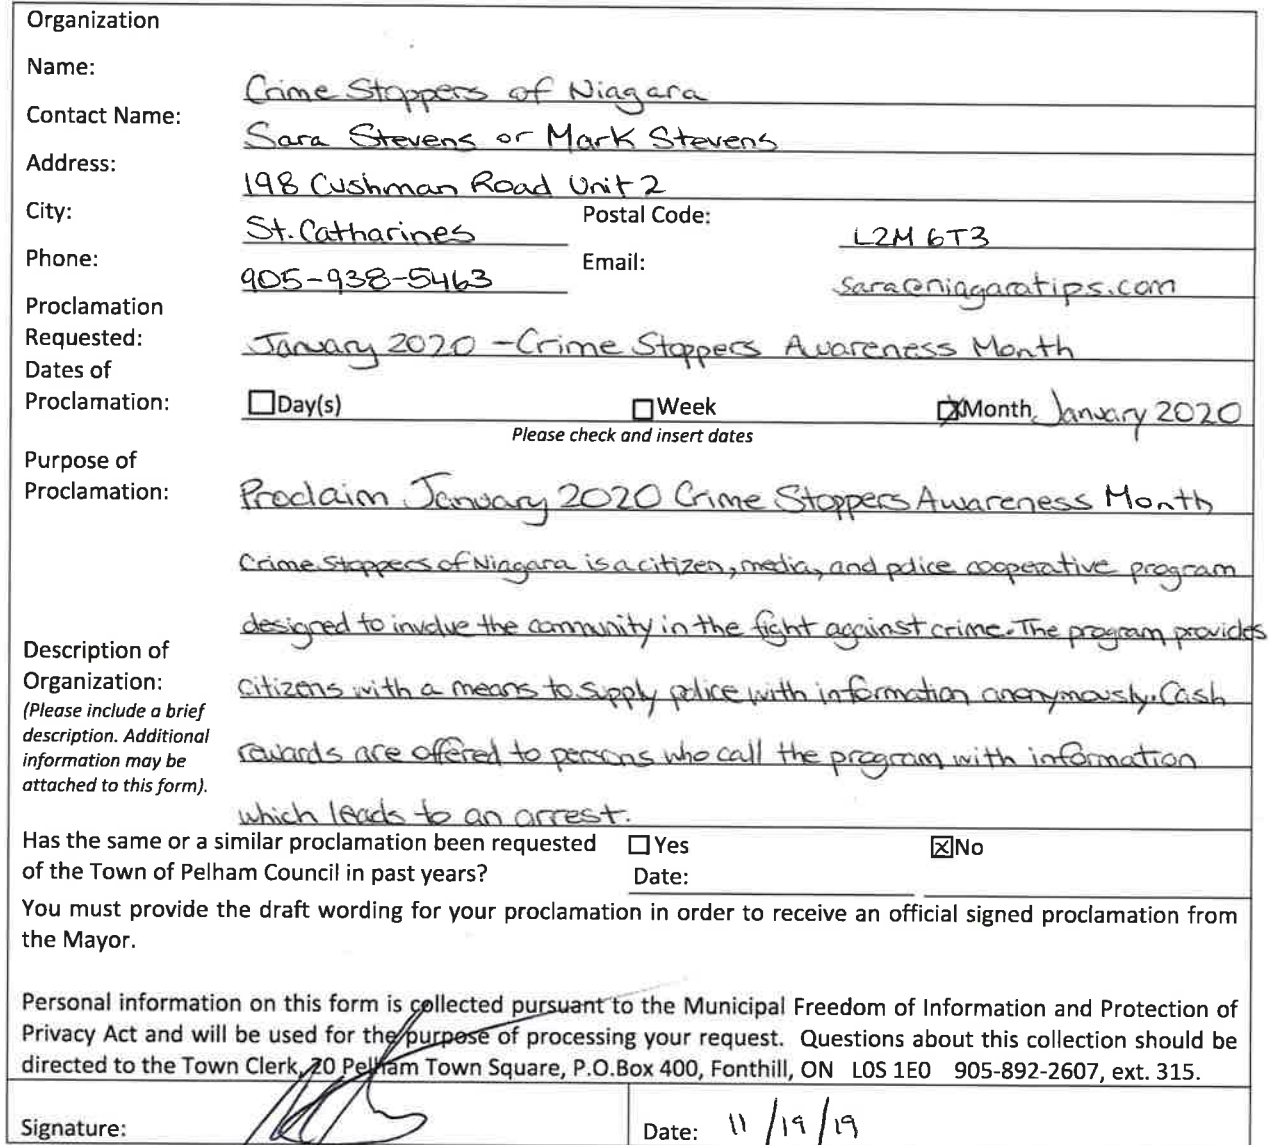 Organization
Name:
Crime Stoppers of Niagara
Contact Name:
Sara Stevens or Mark Stevens
Address:
198 Cushman Road Unit 2
City:
St. Catharines
Postal Code:
L2M 6T3
Phone:
905-938-5463
Email:
sara@niagaratips.com
Proclamation
Requested:
January 2020 - Crime Stoppers Awareness Month
Dates of
Proclamation:
☐ Day(s) ☐ Week ☒ Month January 2020
Please check and insert dates
Purpose of
Proclamation:
Proclaim January 2020 Crime Stoppers Awareness Month
Description of
Organization:
(Please include a brief
description. Additional
information may be
attached to this form).
Crime Stoppers of Niagara is a citizen, media, and police cooperative program
designed to involve the community in the fight against crime. The program provides
citizens with a means to supply police with information anonymously. Cash
rewards are offered to persons who call the program with information
which leads to an arrest.
Has the same or a similar proclamation been requested
of the Town of Pelham Council in past years?
☐ Yes ☒ No
Date:
You must provide the draft wording for your proclamation in order to receive an official signed proclamation from
the Mayor.
Personal information on this form is collected pursuant to the Municipal Freedom of Information and Protection of
Privacy Act and will be used for the purpose of processing your request. Questions about this collection should be
directed to the Town Clerk, 20 Pelham Town Square, P.O.Box 400, Fonthill, ON L0S 1E0 905-892-2607, ext. 315.
Signature:
Date: 11/19/19